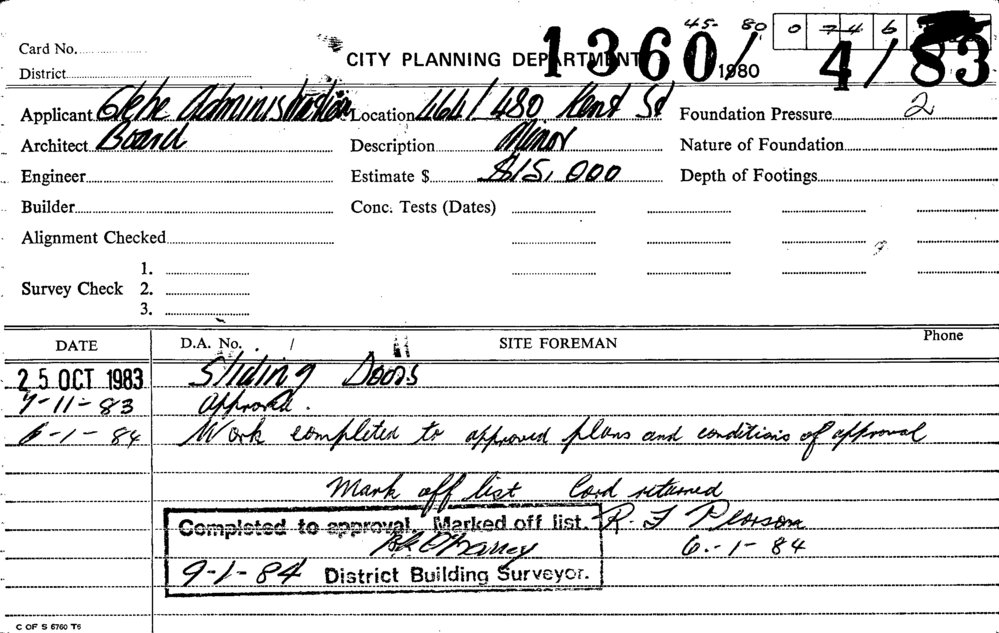 45- 80 0 7 4 6
Card No. CITY PLANNING DEPARTMENT 1360/1980 4/83
District
Applicant Glebe Administration Location 464/480 Kent St Foundation Pressure 2
Architect Board Description Minor Nature of Foundation
Engineer Estimate $ $15,000 Depth of Footings
Builder Conc. Tests (Dates)
Alignment Checked
1.
Survey Check 2.
3.
DATE D.A. No. / SITE FOREMAN Phone
25 OCT 1983 Sliding Doors
7-11-83 Approved.
6-1-84 Work completed to approved plans and conditions of approval
Mark off list Card returned
Completed to approval. Marked off list. R. J Pearson
6.-1-84
9-1-84 District Building Surveyor.
C OF S 6760 T6